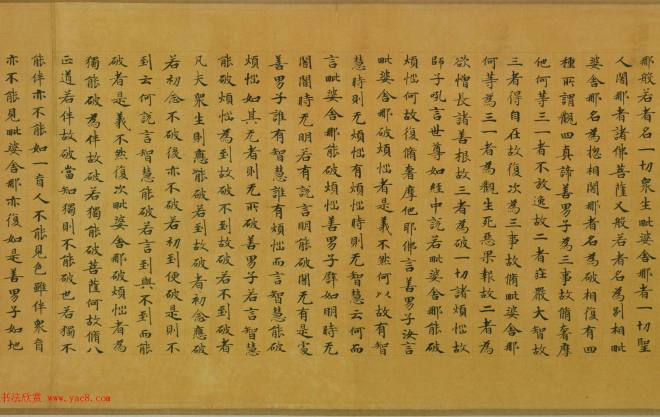 那般若者名一切衆生毗婆舍那者一切聖
人闍那者諸佛菩薩又般若者名為別相毗
婆舍那名為惣相闍那者名為破相復有四
種所謂觀四真諦善男子為三事故脩奢摩
他何等三一者不放逸故二者莊嚴大智故
三者得自在故復次為三事故脩毗婆舍那
何等為三一者為觀生死惡果報故二者為
欲增長諸善根故三者為破一切諸煩惱故
師子吼言世尊如經中說若毗婆舍那能破
煩惱何故復脩奢摩他耶佛言善男子汝言
毗婆舍那破煩惱者是義不然何以故有智
慧時則无煩惱有煩惱時則无智慧云何而
言毗婆舍那能破煩惱善男子譬如明時无
闇闇時无明若有說言明能破闇无有是處
善男子誰有智慧誰有煩惱而言智慧能破
煩惱如其无者則无所破善男子若言智慧
能破煩惱為到故破不到故破若不到破者
凡夫衆生則應能破若到故破者初念應破
若初念不破後亦不破若初到便破是則不
到云何說言智慧能破若言到與不到而能
破者是義不然復次毗婆舍那破煩惱者為
獨能破為伴故破若獨能破菩薩何故脩八
正道若伴故破當知獨則不能破也若獨不
能伴亦不能如一盲人不能見色雖伴衆盲
亦不能見毗婆舍那亦復如是善男子如地
书法欣赏
www.yac8.com